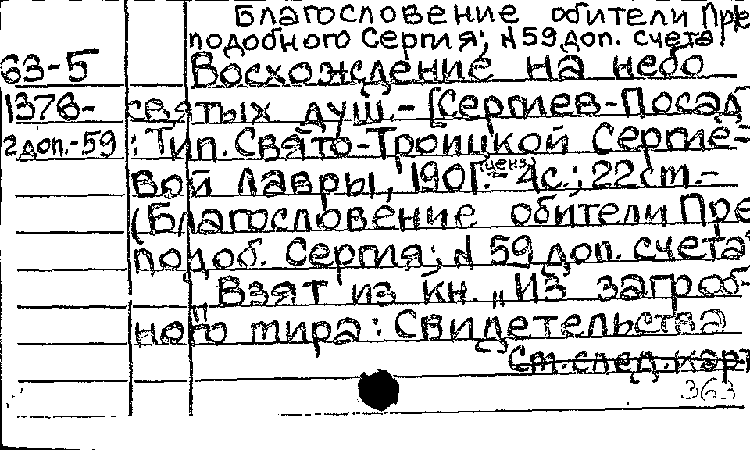 Благословение обители Пре
подобного Сергия; №59 доп. счета.
63-5 Восхождение на небо
1378- святых душ.- [Сергиев-Посад
2 доп.-59 : Тип. Свято-Троицкой Сергие-
вой Лавры, 1901. (ценз.) - 4с.; 22см.-
(Благословение обители Пре
подоб. Сергия; № 59 доп. счета
Взят из кн. „Из загроб-
ного мира: Свидетельства
См. след. карт
363